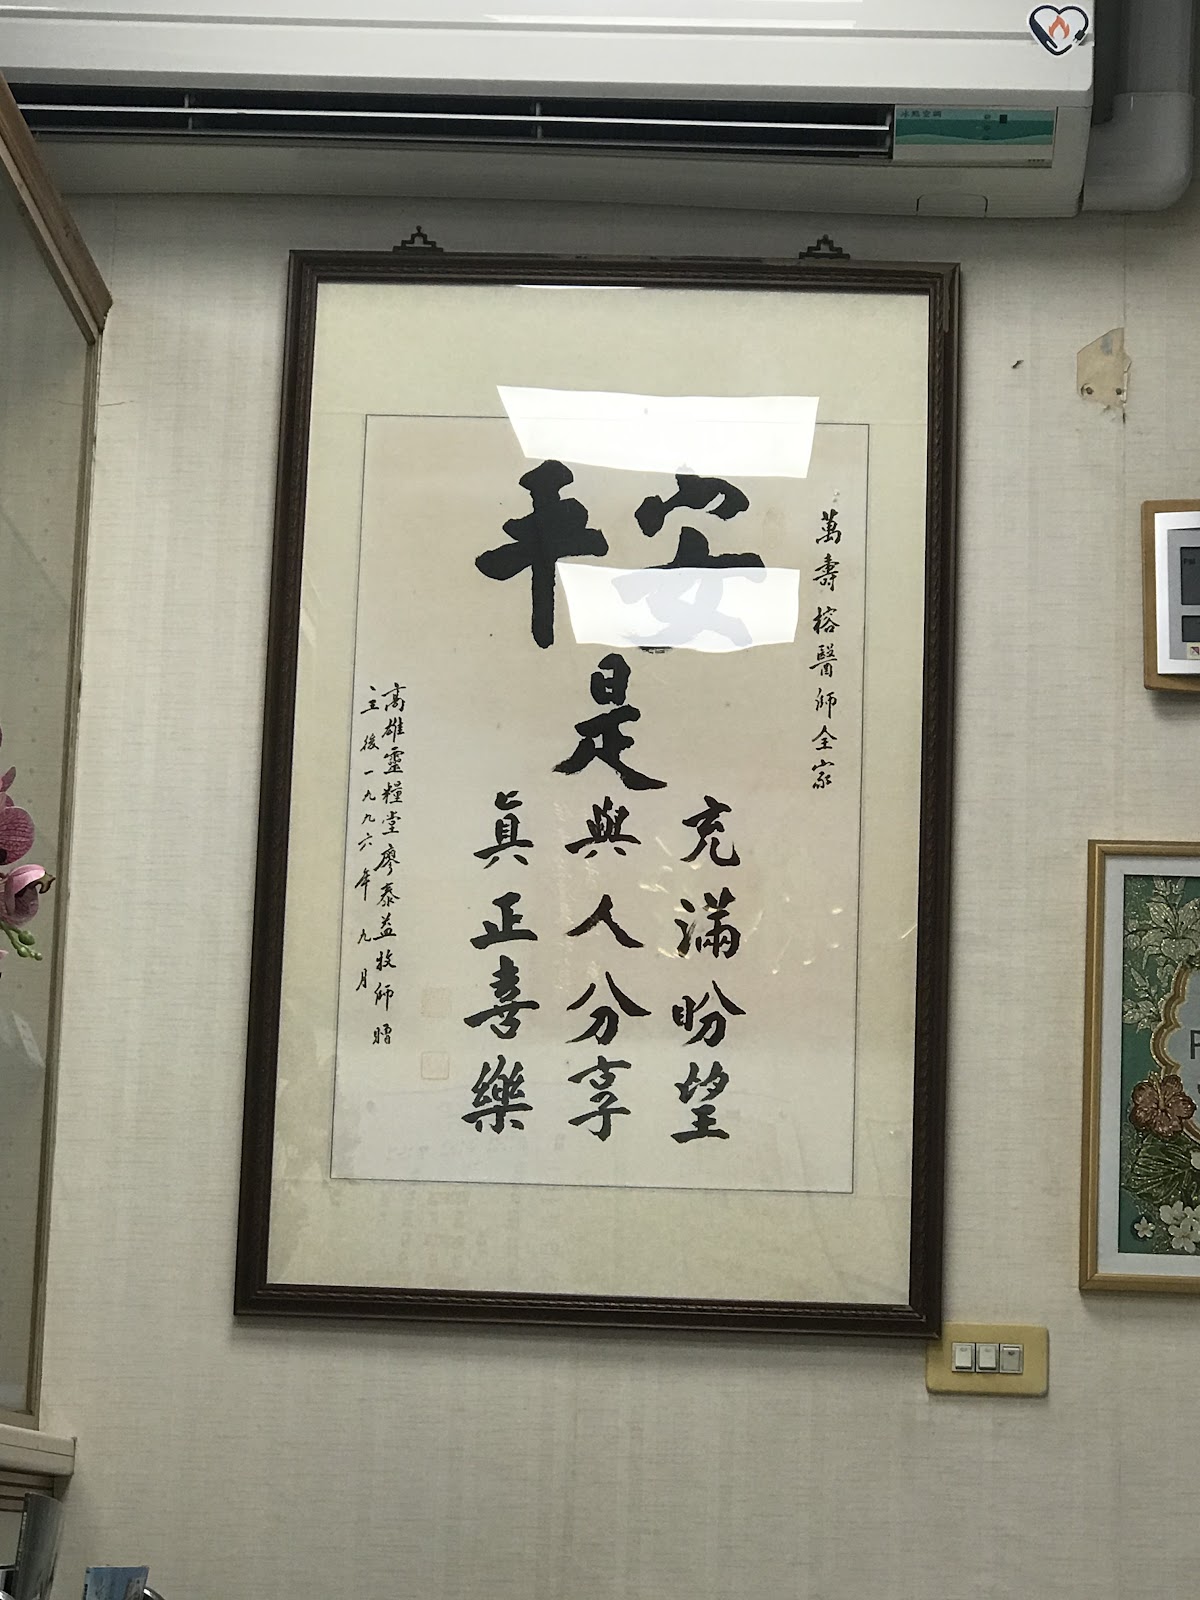 萬壽榕醫師全家
平安
是
充滿盼望
與人分享
真正喜樂
高雄靈糧堂廖泰益牧師贈
主後一九九六年九月
冰點空調